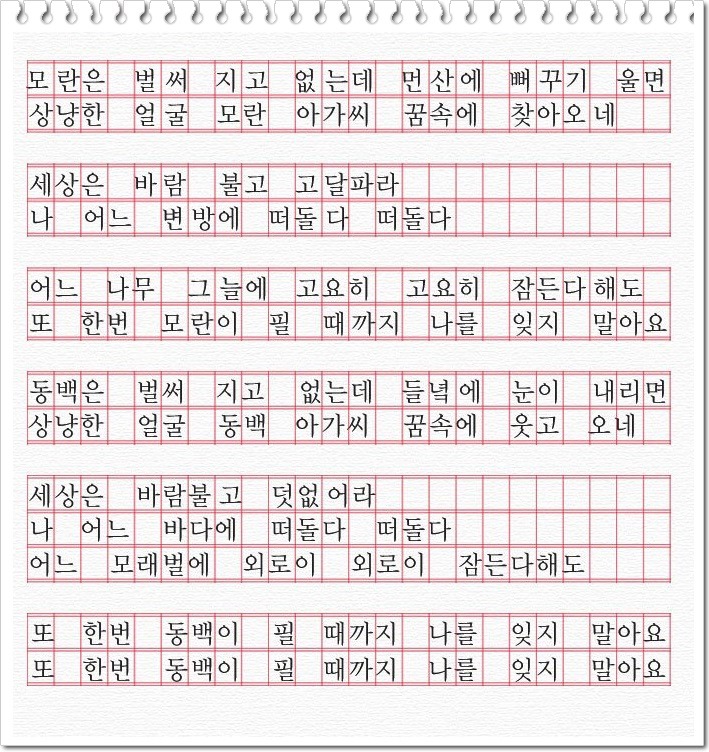 모란은 벌써 지고 없는데 먼산에 뻐꾸기 울면
상냥한 얼굴 모란 아가씨 꿈속에 찾아오네
세상은 바람 불고 고달파라
나 어느 변방에 떠돌다 떠돌다
어느 나무 그늘에 고요히 고요히 잠든다해도
또 한번 모란이 필 때까지 나를 잊지 말아요
동백은 벌써 지고 없는데 들녘에 눈이 내리면
상냥한 얼굴 동백 아가씨 꿈속에 웃고 오네
세상은 바람불고 덧없어라
나 어느 바다에 떠돌다 떠돌다
어느 모래벌에 외로이 외로이 잠든다해도
또 한번 동백이 필 때까지 나를 잊지 말아요
또 한번 동백이 필 때까지 나를 잊지 말아요